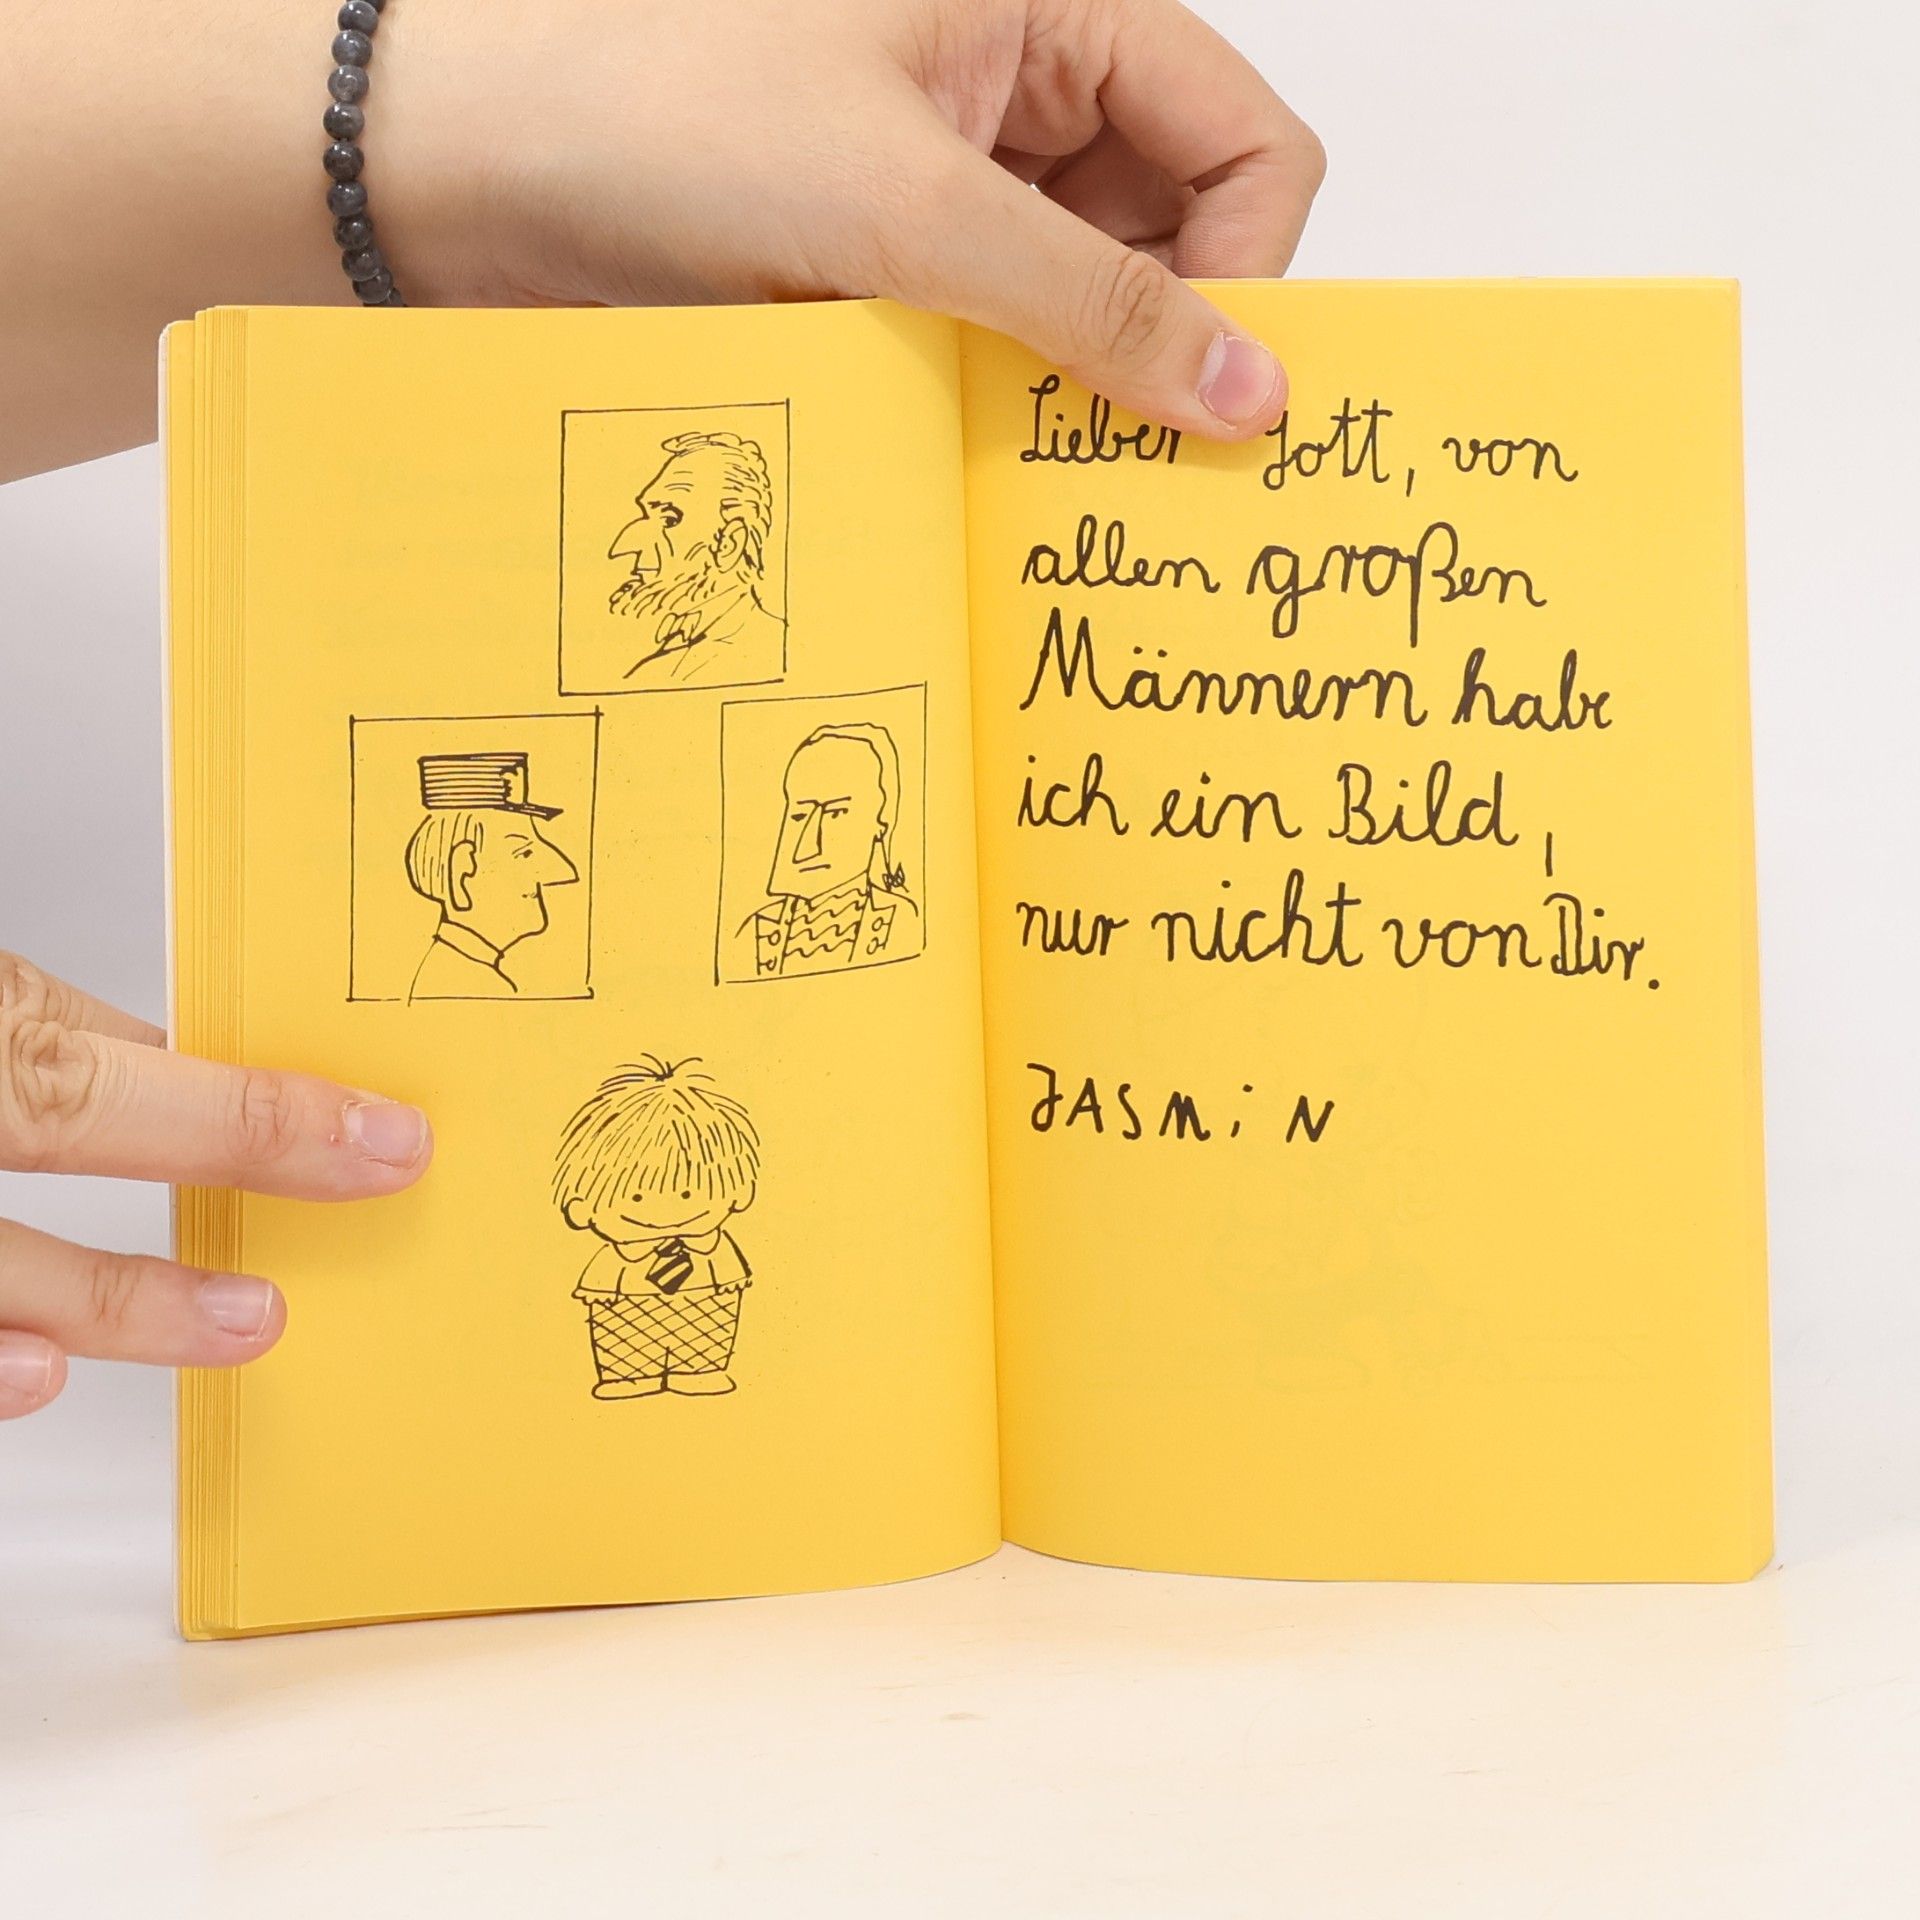 Lieber Gott, von
allen großen
Männern habe
ich ein Bild,
nur nicht von Dir.
JASMiN